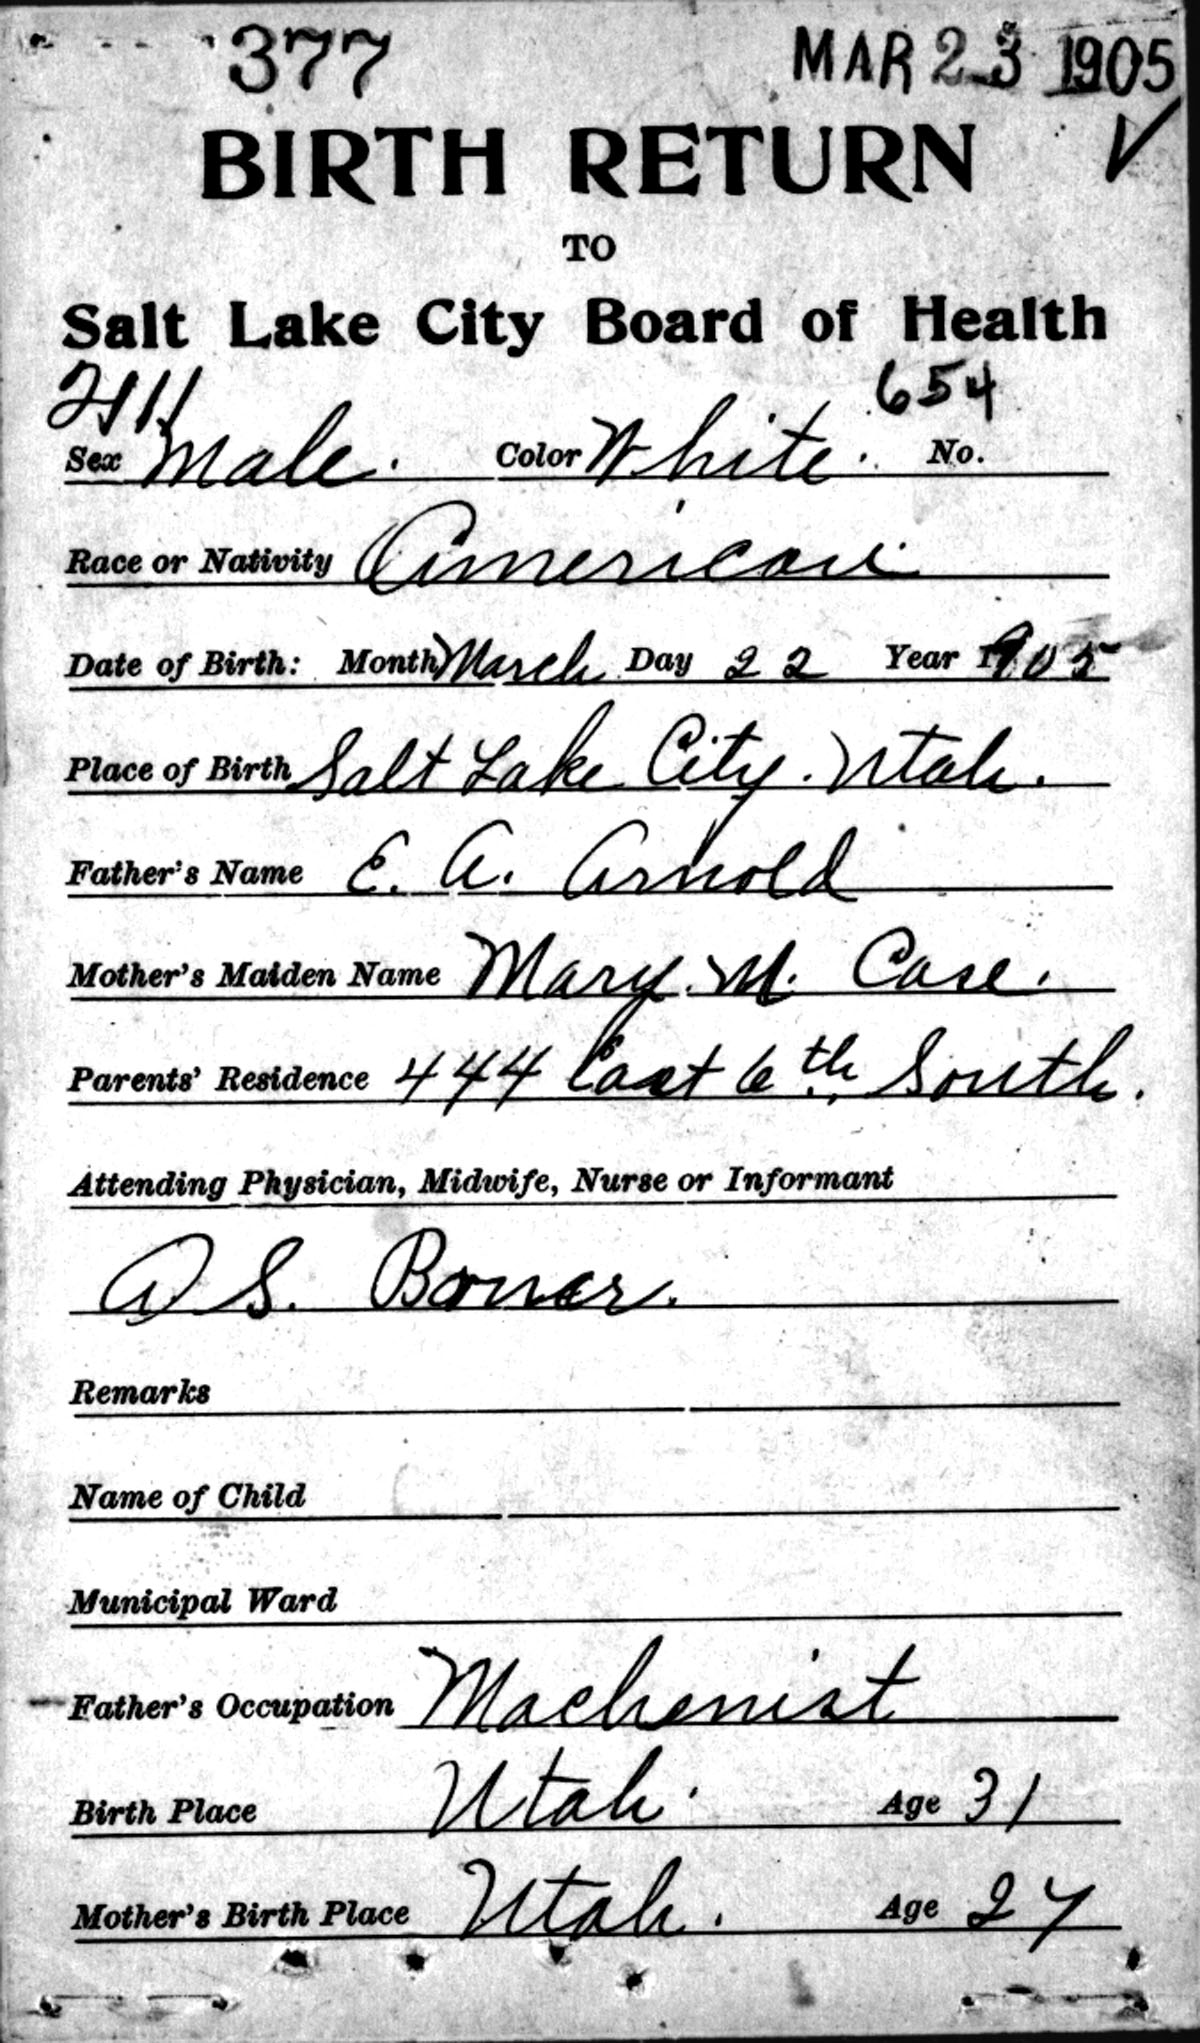 377 MAR 23 1905
BIRTH RETURN
TO
Salt Lake City Board of Health
654
Sex Male. Color White. No.
Race or Nativity American
Date of Birth: Month March Day 22 Year 1905
Place of Birth Salt Lake City. Utah.
Father's Name E. A. Arnold
Mother's Maiden Name Mary. M. Case.
Parents' Residence 444 East 6th South.
Attending Physician, Midwife, Nurse or Informant
S. Bower.
Remarks
Name of Child
Municipal Ward
Father's Occupation Machenist
Birth Place Utah. Age 31
Mother's Birth Place Utah. Age 27